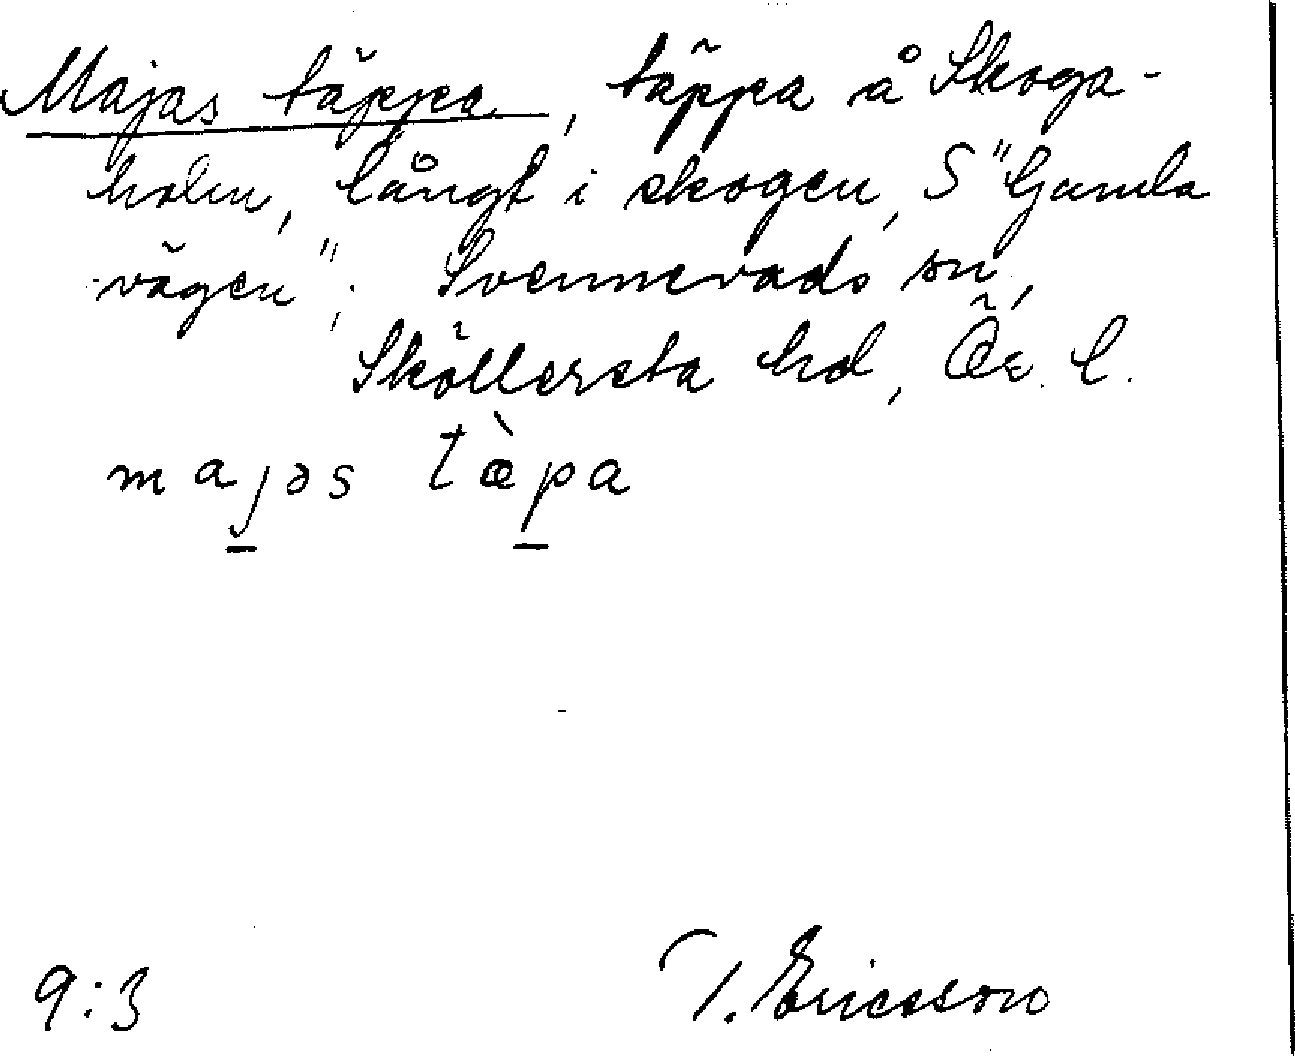 Majas täppa, täppa å Skoga-
holm, långt i skogen, S "Gamla
vägen"; Svennevads sn,
Sköllersta hd, Ör. l.
majəs tæ̀pa
9:3
T. Ericsson